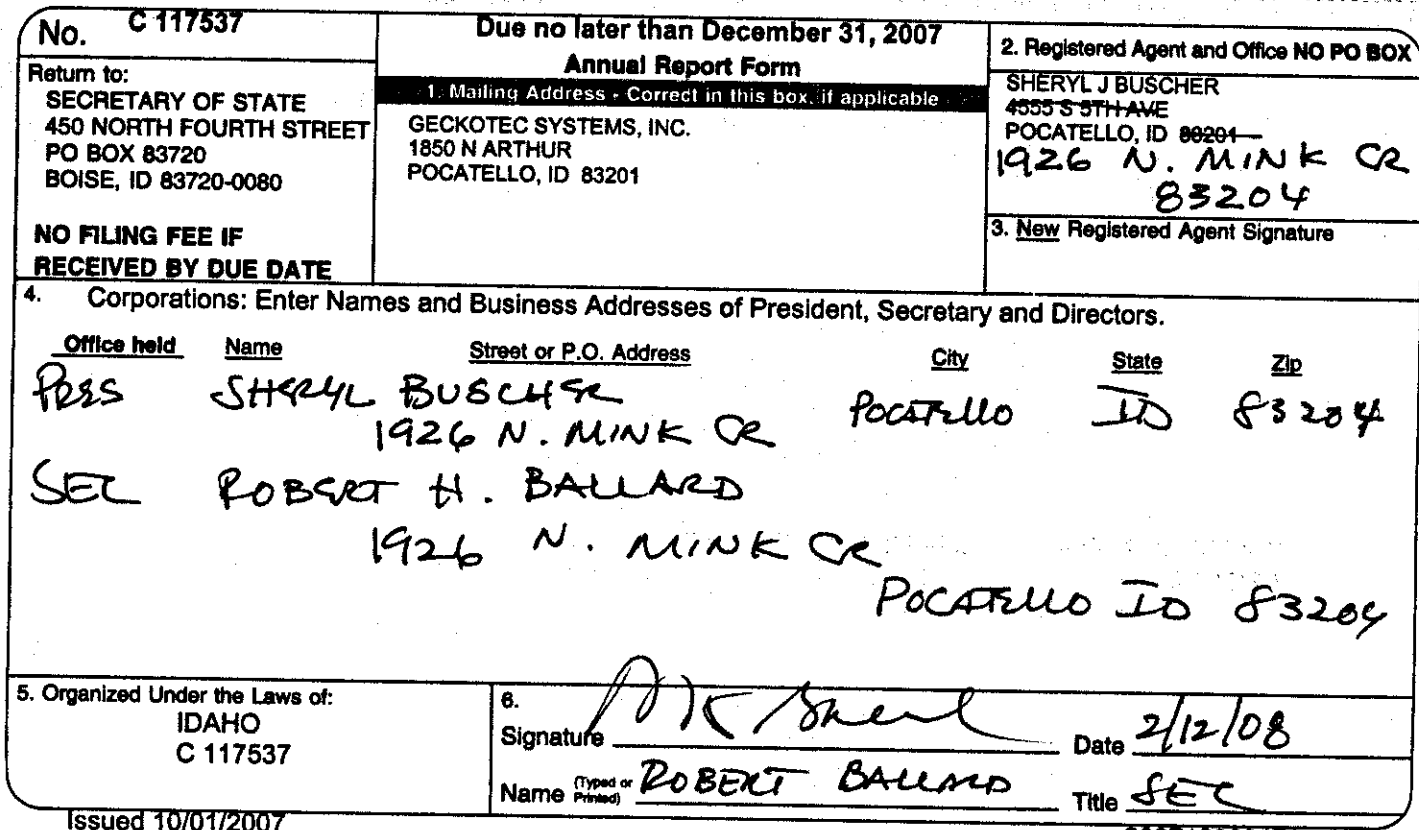 No. C 117537
Return to:
SECRETARY OF STATE
450 NORTH FOURTH STREET
PO BOX 83720
BOISE, ID 83720-0080
NO FILING FEE IF
RECEIVED BY DUE DATE
Due no later than December 31, 2007
Annual Report Form
1. Mailing Address - Correct in this box, if applicable
GECKOTEC SYSTEMS, INC.
1850 N ARTHUR
POCATELLO, ID 83201
2. Registered Agent and Office NO PO BOX
SHERYL J BUSCHER
4555 S 5TH AVE
POCATELLO, ID
1926 N. MINK CR
83204
3. New Registered Agent Signature
4. Corporations: Enter Names and Business Addresses of President, Secretary and Directors.
Office held Name Street or P.O. Address City State Zip
PRES SHERYL BUSCHER
1926 N. MINK CR POCATELLO ID 83204
SEC ROBERT H. BALLARD
1926 N. MINK CR
POCATELLO ID 83204
5. Organized Under the Laws of:
IDAHO
C 117537
6.
Signature Date 2/12/08
Name (Typed or Printed) ROBERT BALLARD Title SEC
Issued 10/01/2007